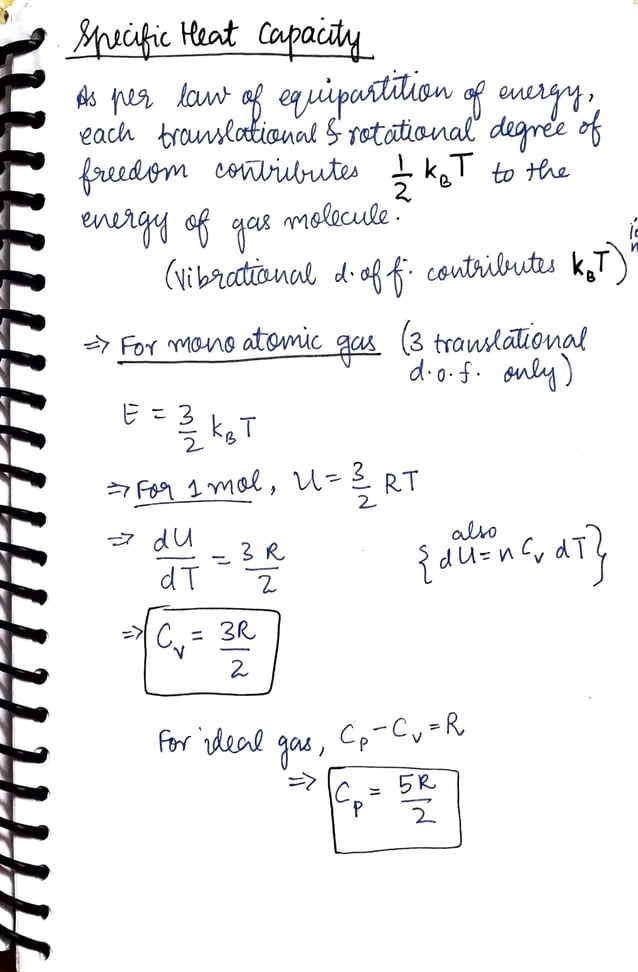 Specific Heat Capacity
As per law of equipartition of energy,
each translational & rotational degree of
freedom contributes 1/2 k_B T to the
energy of gas molecule.
(Vibrational d. of f. contributes k_B T)
⇒ For mono atomic gas (3 translational
d.o.f. only)
E = 3/2 k_B T
⇒ For 1 mol, U = 3/2 RT
⇒ dU/dT = 3R/2 {also dU = n C_v dT}
⇒ C_v = 3R/2
For ideal gas, C_p - C_v = R
⇒ C_p = 5R/2